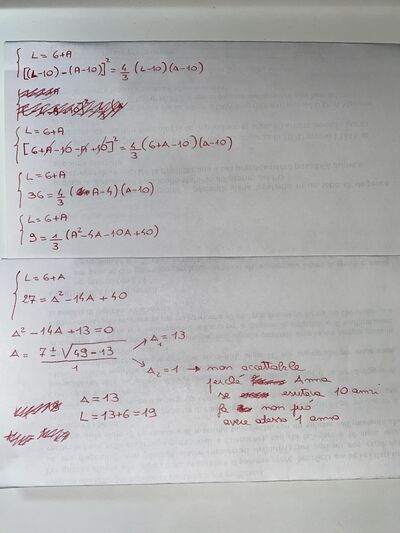 { L = 6+A
[(L-10)-(A-10)]² = 4/3 (L-10)(A-10)
{ L = 6+A
[6+A-10-A+10]² = 4/3 (6+A-10)(A-10)
{ L = 6+A
36 = 4/3 (A-4)(A-10)
{ L = 6+A
9 = 1/3 (A²-4A-10A+40)
{ L = 6+A
27 = A²-14A+40
A²-14A+13=0
A = 7±√49-13 / 1
A₁=13
A₂=1 → non accettabile
perché Anna
se esisteva 10 anni
fa non può
avere adesso 1 anno
A = 13
L = 13+6 = 19